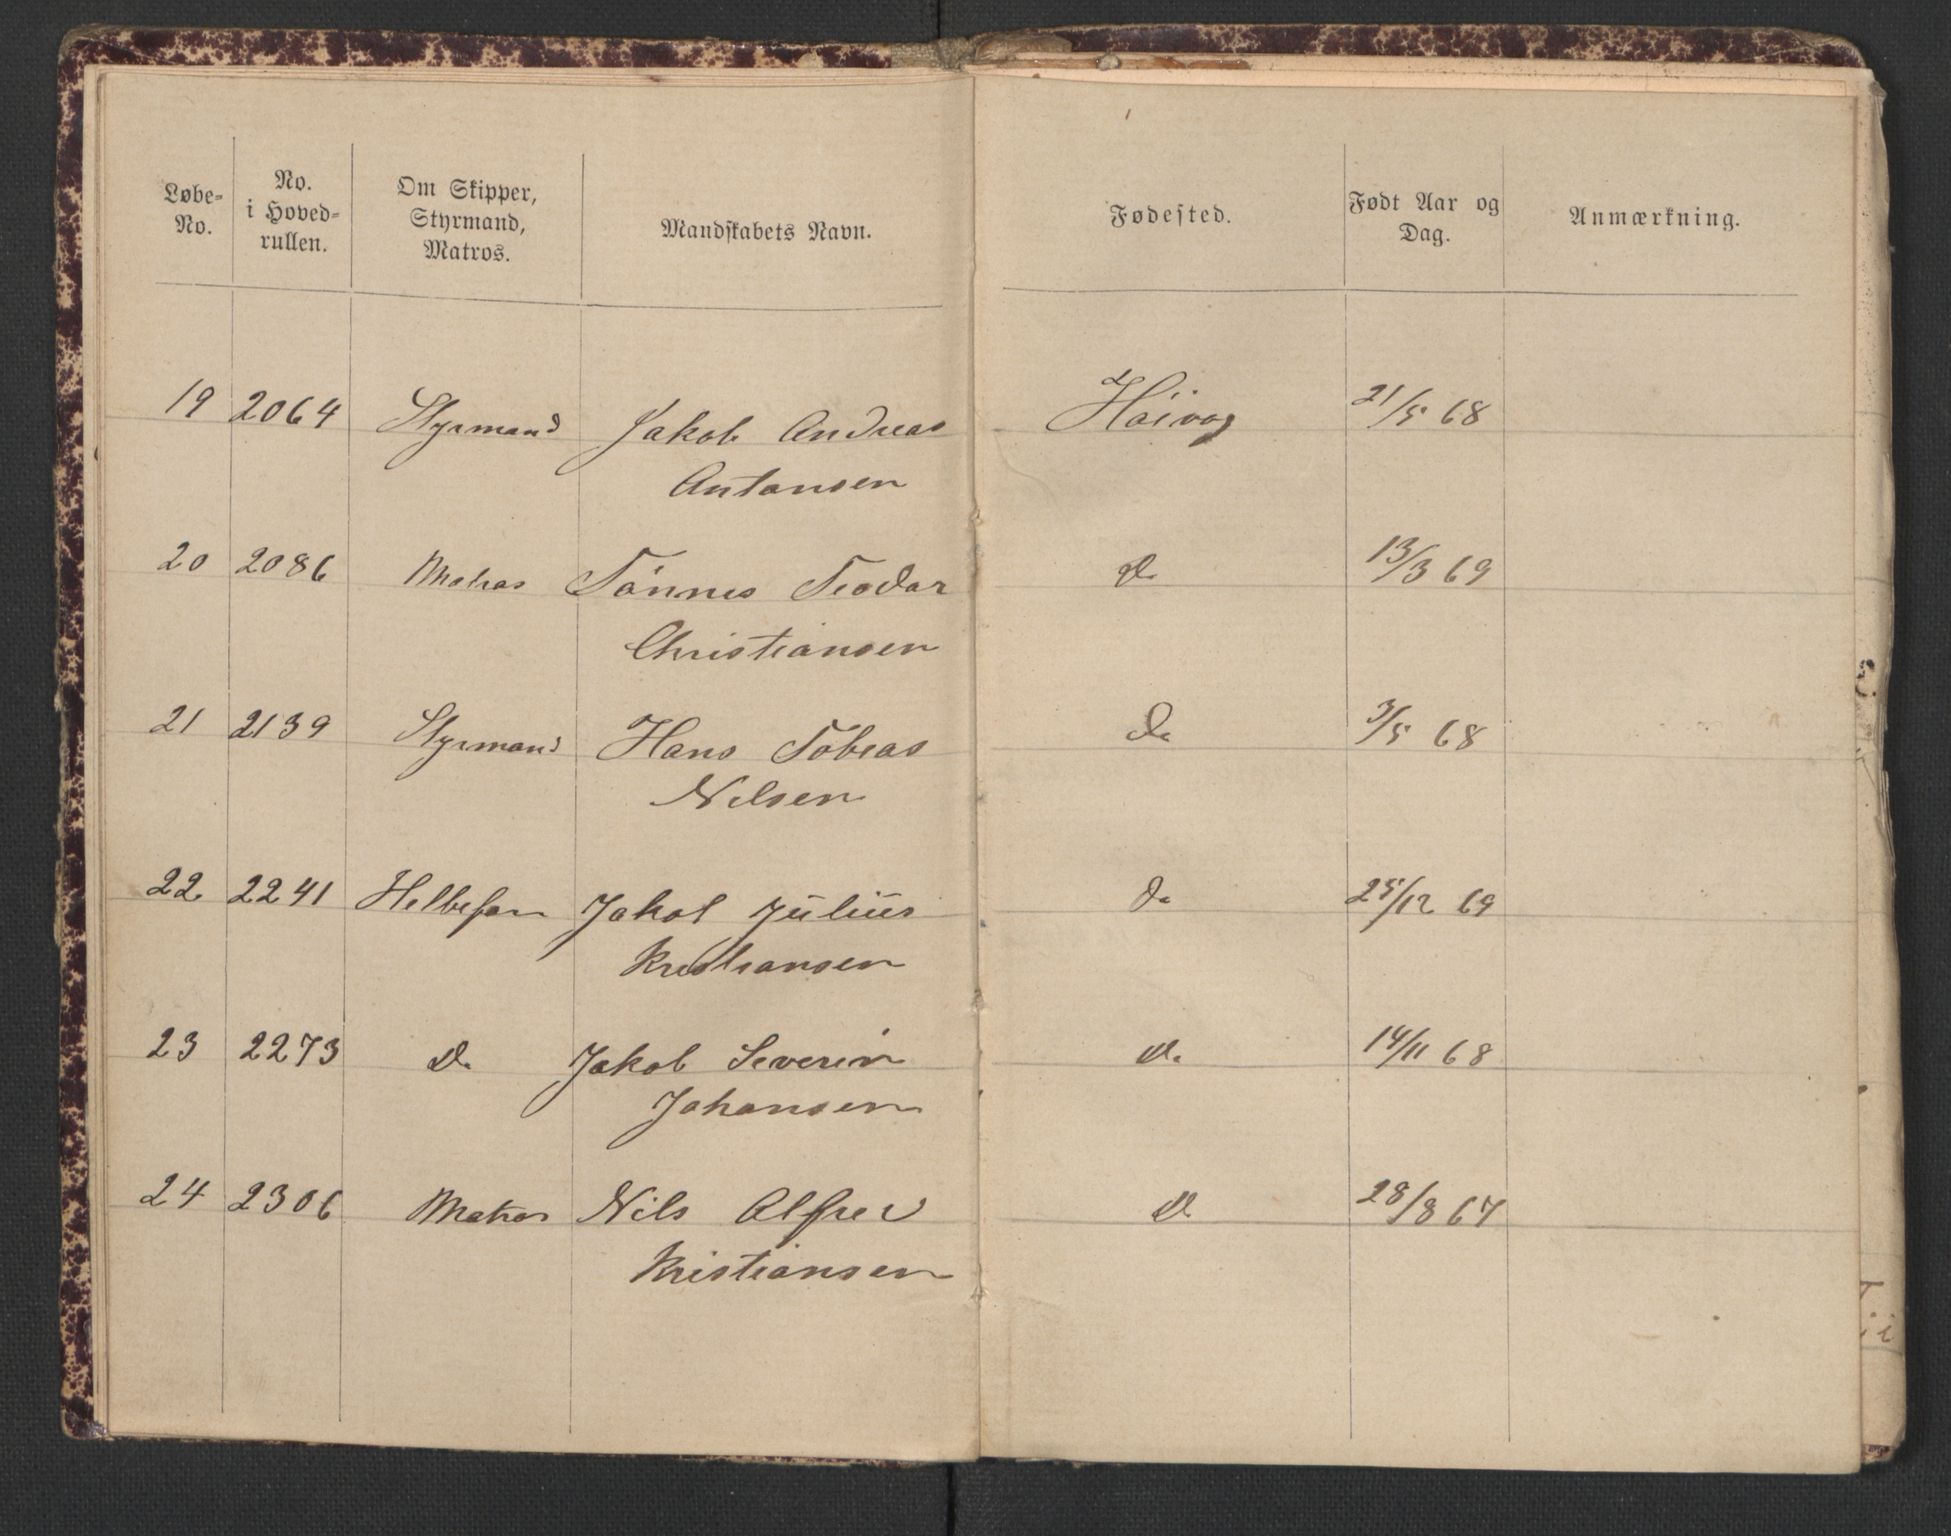 Løbe-No.
No. i Hoved-rullen.
Om Skipper, Styrmand, Matros.
Mandskabets Navn.
Fødested.
Født Aar og Dag.
Anmærkning.
19 2064 Styrmand Jakob Andreas Høivog 21/5 68
Antonsen
20 2086 Matros Tönnes Teodor Do 13/3 69
Christiansen
21 2139 Styrmand Hans Tobias Do 3/5 68
Nilsen
22 2241 Helbefan Jakob Julius Do 25/12 69
Kristiansen
23 2273 Do Jakob Severin Do 14/11 68
Johansen
24 2306 Matros Nils Alfred Do 28/8 67
Kristiansen